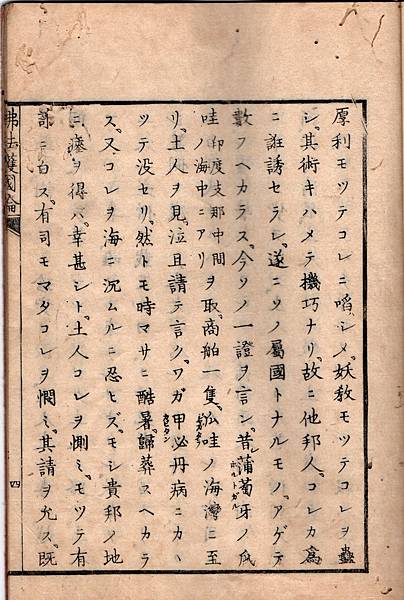 厚利モツテコレニ啗シメ、妖教モツテコレヲ蠱
シ、其術キハメテ機巧ナリ、故ニ他邦人、コレカ為
ニ誑誘セラレ、遂ニソノ属國トナルモノ、アゲテ
數フヘカラス、今ソノ一證ヲ言ン、昔シ葡萄牙ノ瓜
ホルトガル
哇印度支那中間ノ海中ニアリヲ取、商舶一隻、瓜哇ノ海灣ニ至
リ、土人ヲ見、泣且請テ言ク、ワガ甲必丹病ニカヽ
カピタン
ツテ没セリ、然トモ時マサニ酷暑、歸葬スヘカラ
ス、又コレヲ海ニ沉ムルニ忍ヒズ、モシ貴邦ノ地
ニ瘞ヲ得バ、幸甚シト、土人コレヲ惻ミ、モツテ有
司ニ白ス、有司モマタコレヲ憫ミ、其請ヲ允ス、既
佛法護國論
四